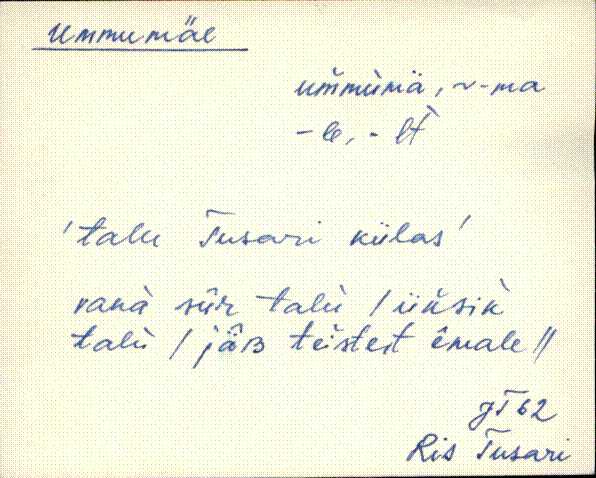 Ummumäe
ùmmùmä, ~-ma
-le, -lt
'talu Tusari külas'
vanà sûr talù / üksik
talù / jâB teistest êmale //
JT 62
Ris Tusari